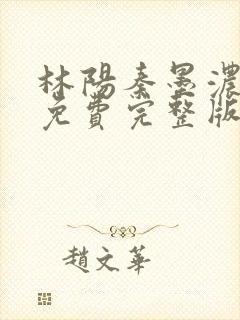 林陽秦墨濃
免費完整版
趙文華